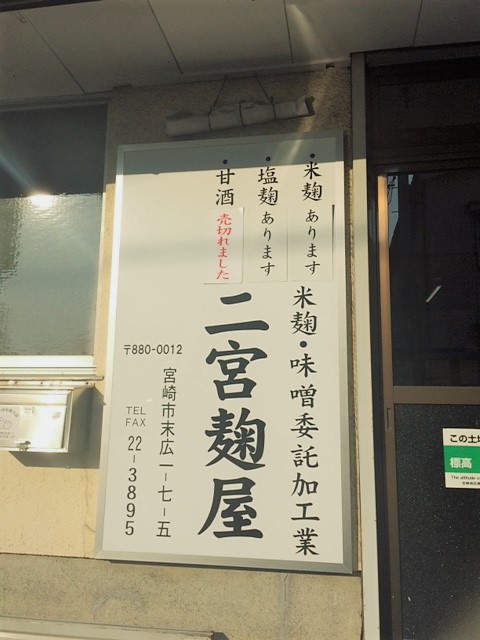 ・米麹 あります
・塩麹 あります
・甘酒 売切れました
米麹・味噌委託加工業
二宮麹屋
宮崎市末広一ー七ー五
〒880-0012
TEL
FAX
22-3895
この土地
標高
The altitude